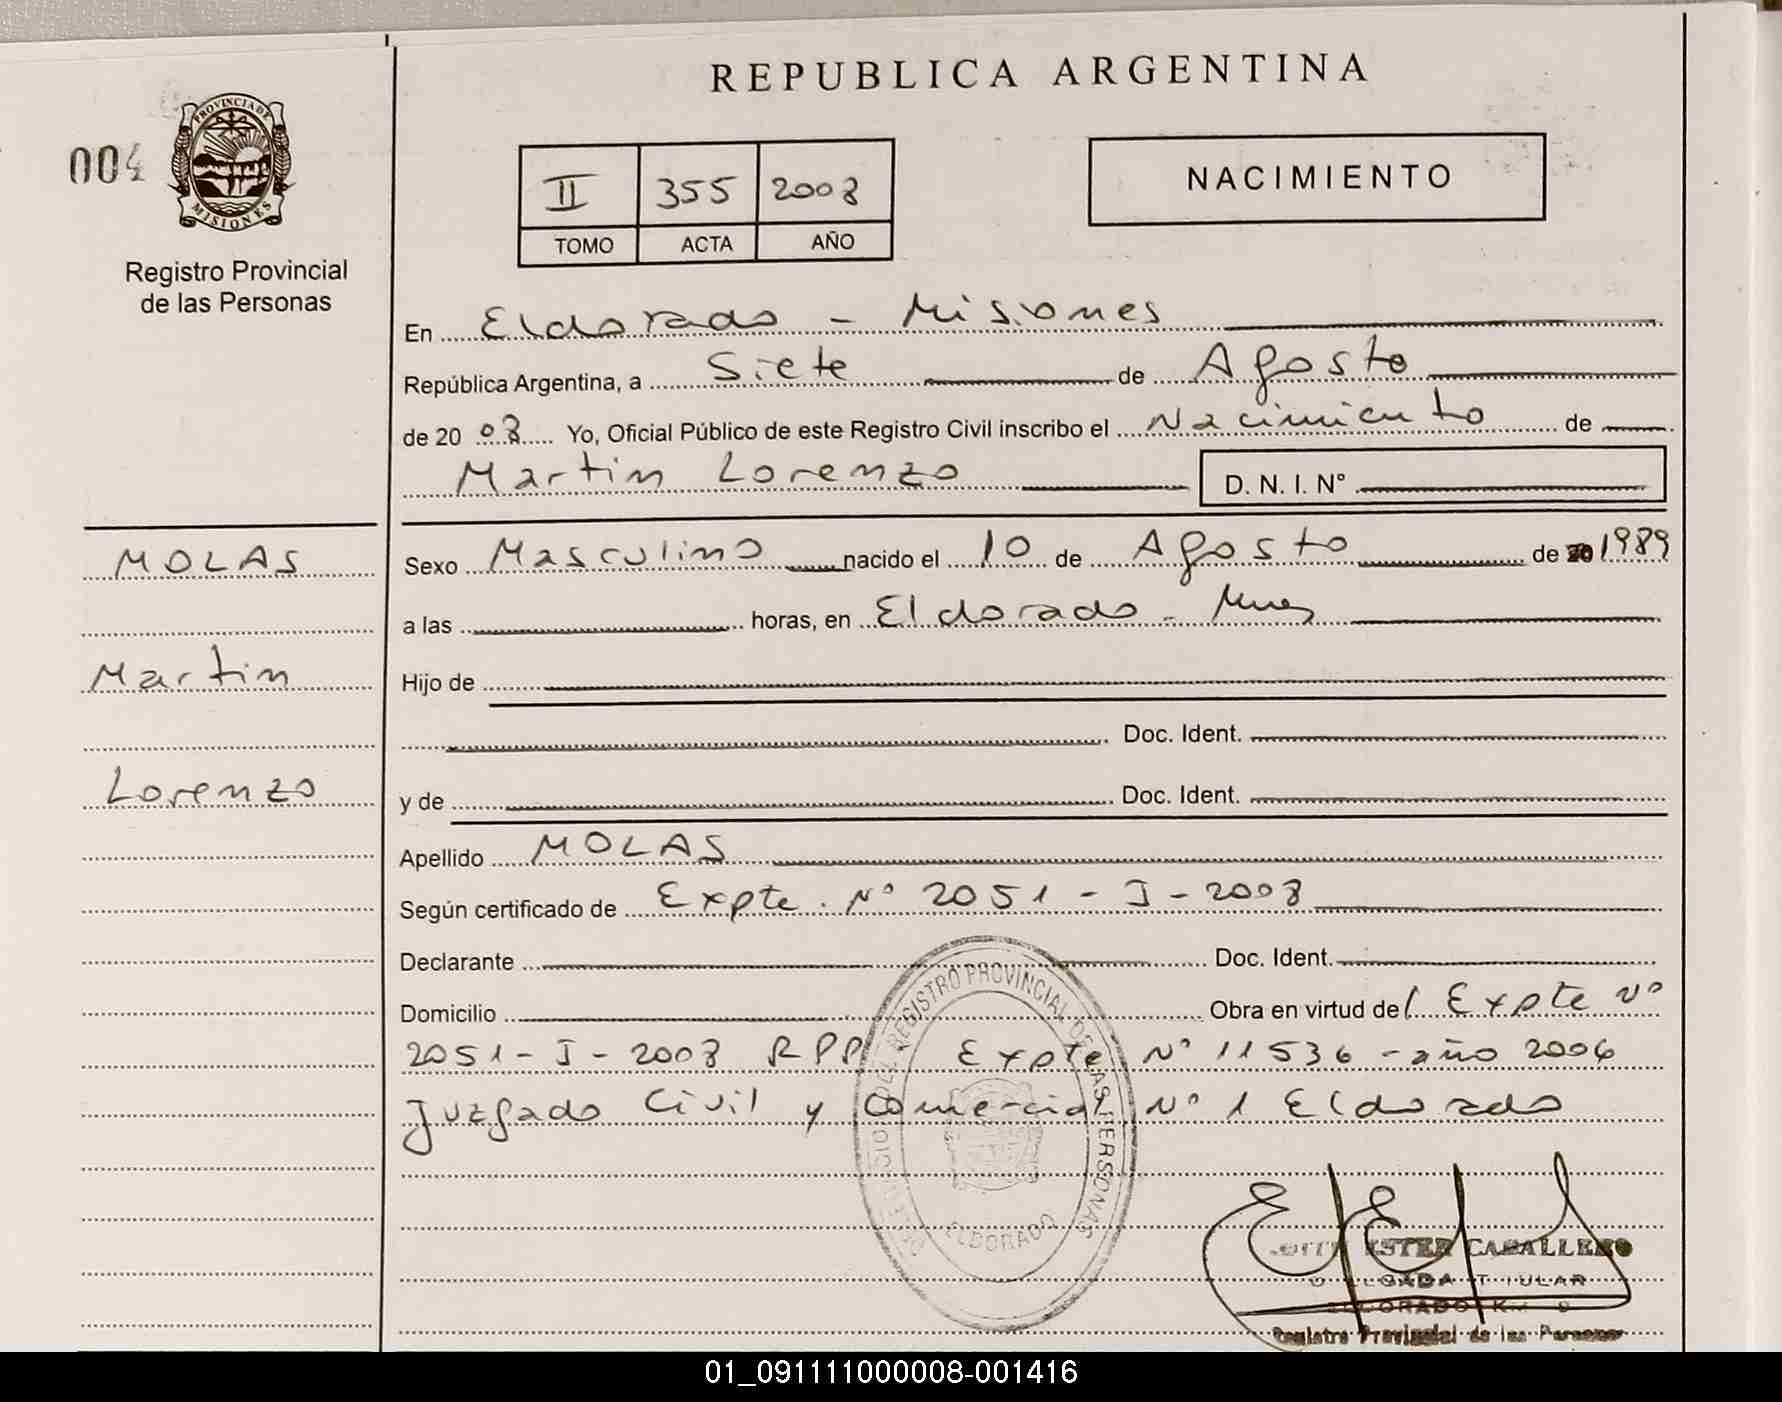 REPUBLICA ARGENTINA
004
PROVINCIA DE
MISIONES
Registro Provincial
de las Personas
II 355 2008
TOMO ACTA AÑO
NACIMIENTO
En Eldorado - Misiones
República Argentina, a Siete de Agosto
de 20 08 Yo, Oficial Público de este Registro Civil inscribo el Nacimiento de
Martin Lorenzo D. N. I. N°
MOLAS
Martin
Lorenzo
Sexo Masculino nacido el 10 de Agosto de 20 1989
a las horas, en Eldorado - Mnes
Hijo de
Doc. Ident.
y de Doc. Ident.
Apellido MOLAS
Según certificado de Expte. N° 2051 - I - 2008
Declarante Doc. Ident.
Domicilio Obra en virtud de Expte N°
2051 - I - 2008 RPP Expte N° 11536 - año 2006
Juzgado Civil y Comercial N° 1 Eldorado
REGISTRO PROVINCIAL DE LAS PERSONAS
ELDORADO
ESTER CABALLERO
DELEGADA TITULAR
ELDORADO KM 9
Registro Provincial de las Personas
01_091111000008-001416